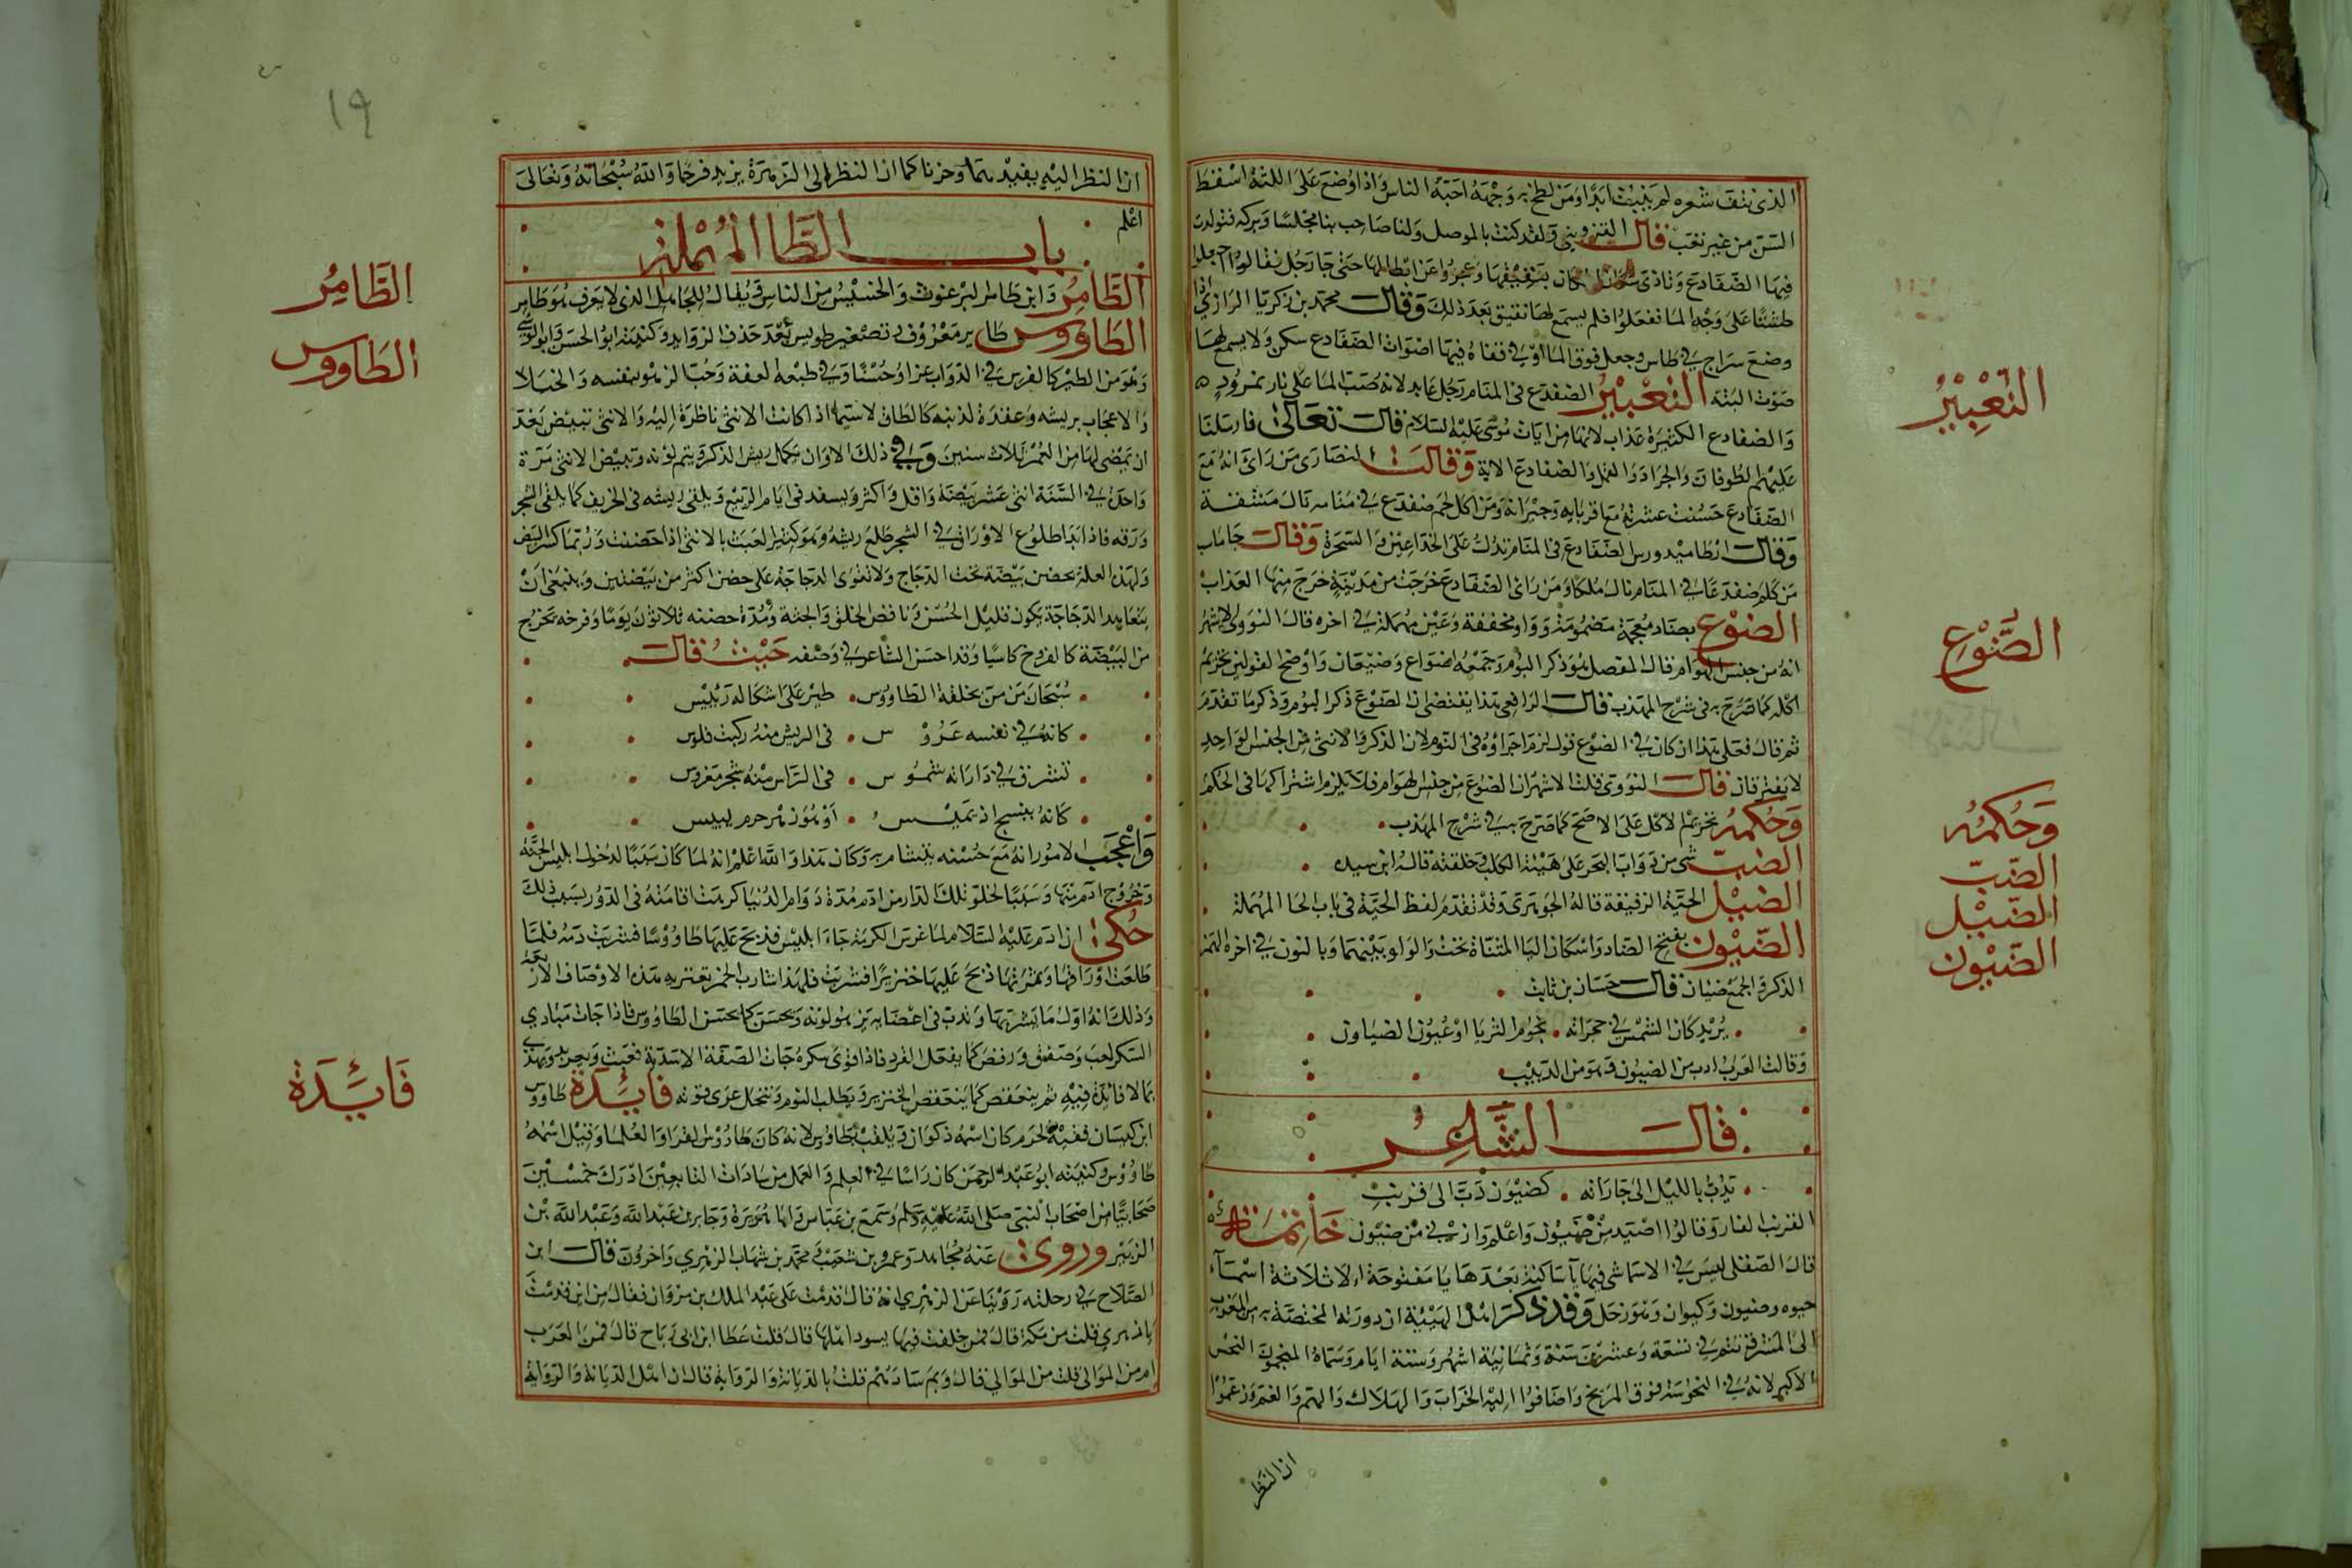 الذي نتف شعره لم ينبت ابدا ومن لطخ به وجهه احبه الناس واذا وضع على اللثة اسقط
السن من غير تعب قال القزويني ولقد كنت بالموصل ولنا صاحب بنا مجلسا وبركة فتولدت
فيها الضفادع وتاذى سكان المكان بنقيقها وعجزوا عن ابطالها حتى جا رجل فقال اجعلوا
طشتا على وجه الما ففعلوا فلم يسمع لها نقيق بعد ذلك وقال محمد بن زكريا الرازي اذا
وضع سراج في طاس وجعل فوق الما او في قناة فيها اصوات الضفادع سكن ولا يسمع لها
صوت البتة التعبير الضفدع في المنام رجل عابد لانه صب الما على نار نمرود
والضفادع الكثيرة عذاب لانها من ايات موسى عليه السلام قال تعالى فارسلنا
عليهم الطوفان والجراد والقمل والضفادع الاية وقالت النصارى من راى انه مع
الضفادع حسنت عشرته مع اقربايه وجيرانه ومن اكل لحم ضفدع في منامه نال مشقة
وقال ارطاميدورس الضفادع في المنام تدل على الخداعين والسحرة وقال جاماسب
من كلم ضفدعا في المنام نال ملكا ومن راى الضفادع خرجت من مدينة خرج منها العذاب
الضوع بضاد معجمة مضمومة وواو مخففة وعين مهملة في اخره قال النووي الاشهر
انه من جنس الهوام قال المفصل هو ذكر البوم وجمعه اضواع وضيعان واوضح القولين تحريم
اكله كما صرح به في شرح المهذب قال الرافعي هذا يقتضي ان الضوع ذكر البوم وذكر ما تقدم
ثم قال فعلى هذا ان كان في الضوع قول لزم اجراؤه في البوم لان الذكر والانثى من الجنس الواحد
لا يفترقان قال النووي قلت الاشهر ان الضوع من جنس الهوام فلا يلزم اشتراكهما في الحكم
وحكمه تحريم الاكل على الاصح كما صرح به في شرح المهذب
الضيب شي من دواب البحر على هيئة الكلب وخلقته قاله ابن سيده
الضئيل الحية الرقيقة قاله الجوهري وقد تقدم لفظ الحية في باب الحا المهملة
الضيون بفتح الضاد واسكان اليا المثناة تحت والواو بينهما وبالنون في اخره الهر
الذكر والجمع ضياون قال حسان بن ثابت
يريد كان الشمس في حجراته نجوم الثريا او عيون الضياون
وقالت العرب ادب من الضيون وهو من الدبيب
قال الشاعر
يدب بالليل الى جاراته كضيون دب الى قرنب
القرنب الفار وقالوا اصيد من ضيون واعلم وازنى من ضيون خاتمة
قال الصقلي ليس في الاسما شي فيها يا ساكنة بعدها يا مفتوحة الا ثلاثة اسماء
حيوة وضيون وكيوان وهو زحل وقد ذكر اهل الهيئة ان دورته المختصة به من المغرب
الى المشرق تتم في تسعة وعشرين سنة وثمانية اشهر وستة ايام وسماه المنجمون النحس
الاكبر لانه في النحوسة فوق المريخ واضافوا اليه الخراب والهلاك والهم والغم وزعموا
ان النظر
التعبير
الضوع
وحكمه
الضيب
الضئيل
الضيون
١٩
ان النظر اليه يفيد هما وحزنا كما ان النظر الى الزهرة يزيد فرحا والله سبحانه وتعالى
اعلم
باب الطا المهملة
الطامر وابن طامر البرغوث والخسيس من الناس ويقال للجاهل الذي لا يعرف هو طامر
الطاووس طاير معروف وتصغيره طويس بعد حذف الزوايد وكنيته ابو الحسن وابو الوشي
وهو من الطير كالفرس في الدواب عزا وحسنا وفي طبعه العفة وحب الزهو بنفسه والخيلا
والاعجاب بريشه وعقده لذنبه كالطاق لا سيما اذا كانت الانثى ناظرة اليه والانثى تبيض بعد
ان يمضي لها من العمر ثلاث سنين وفي ذلك الاوان يكمل ريش الذكر ويتم لونه وتبيض الانثى مرة
واحدة في السنة اثنى عشر بيضة واقل واكثر ويسفد في ايام الربيع ويلقى ريشه في الخريف كما يلقى الشجر
ورقه فاذا بدا طلوع الاوراق في الشجر طلع ريشه وهو كثير العبث بالانثى اذا حضنت وربما كسر البيض
ولهذه العلة يحضن بيضه تحت الدجاج ولا تقوى الدجاجة على حضن اكثر من بيضتين وينبغي ان
يتعاهد الدجاجة يكون قليل الحسن وناقص الخلق والجثة ومدة حضنه ثلاثون يوما وفرخه يخرج
من البيضة كالفروخ كاسيا وقد احسن الشاعر في وصفه حيث قال
سبحان من من خلقه الطاووس طير على اشكاله رئيس
كانه في نقشه عروس في الريش منه ركبت فلوس
تشرق في داراته شموس في الراس منه شجر مغروس
كانه بنفسج اذ يميس او هو زهر حرم يبيس
واعجب الامور انه مع حسنه يتشام به وكان هذا والله اعلم انه لما كان سببا لدخول ابليس الجنة
وخروج ادم منها وسببا لخلو تلك الدار من ادم مدة دوام الدنيا كرهت اقامته في الدور بسبب ذلك
حكي ان ادم عليه السلام لما غرس الكرمة جاء ابليس فذبح عليها طاووسا فشربت دمه فلما
طلعت اوراقها وثمرتها ذبح عليها خنزيرا فشربت فلهذا شارب الخمر تعتريه هذه الاوصاف الاربعة
وذلك انه اول ما يشربها وتدب في اعضايه يزهو لونه ويحسن كما يحسن الطاووس فاذا جات مبادي
السكر لعب وصفق ورقص كما يفعل القرد فاذا قوى سكره جات الصفة الاسدية فيعبث ويعربد ويهذي
بما لا فائدة فيه ثم يتقعص كما يتقعص الخنزير ويطلب النوم وتنحل عرى قوته فايدة طاووس
ابن كيسان فقيه الحرم كان اسمه ذكوان ويلقب بطاووس لانه كان طاووس القرا والعلما وقيل اسمه
طاووس وكنيته ابو عبد الرحمن كان راسا في العلم والعمل من سادات التابعين ادرك خمسين
صحابيا من اصحاب النبي صلى الله عليه وسلم وسمع بن عباس وابا هريرة وجابر بن عبد الله وعبد الله بن
الزبير وروى عنه مجاهد وعمرو بن شعيب ومحمد بن شهاب الزهري واخرون قال ابن
الصلاح في رحلته روينا عن الزهري انه قال قدمت على عبد الملك بن مروان فقال من اين قدمت
يا زهري قلت من مكة قال فمن خلفت فيها يسود اهلها قال قلت عطا ابن ابي رباح قال فمن العرب
ام من الموالي قلت من الموالي قال وبم سادهم قلت بالديانة والرواية قال ان اهل الديانة والرواية
الطامر
الطاووس
فايدة